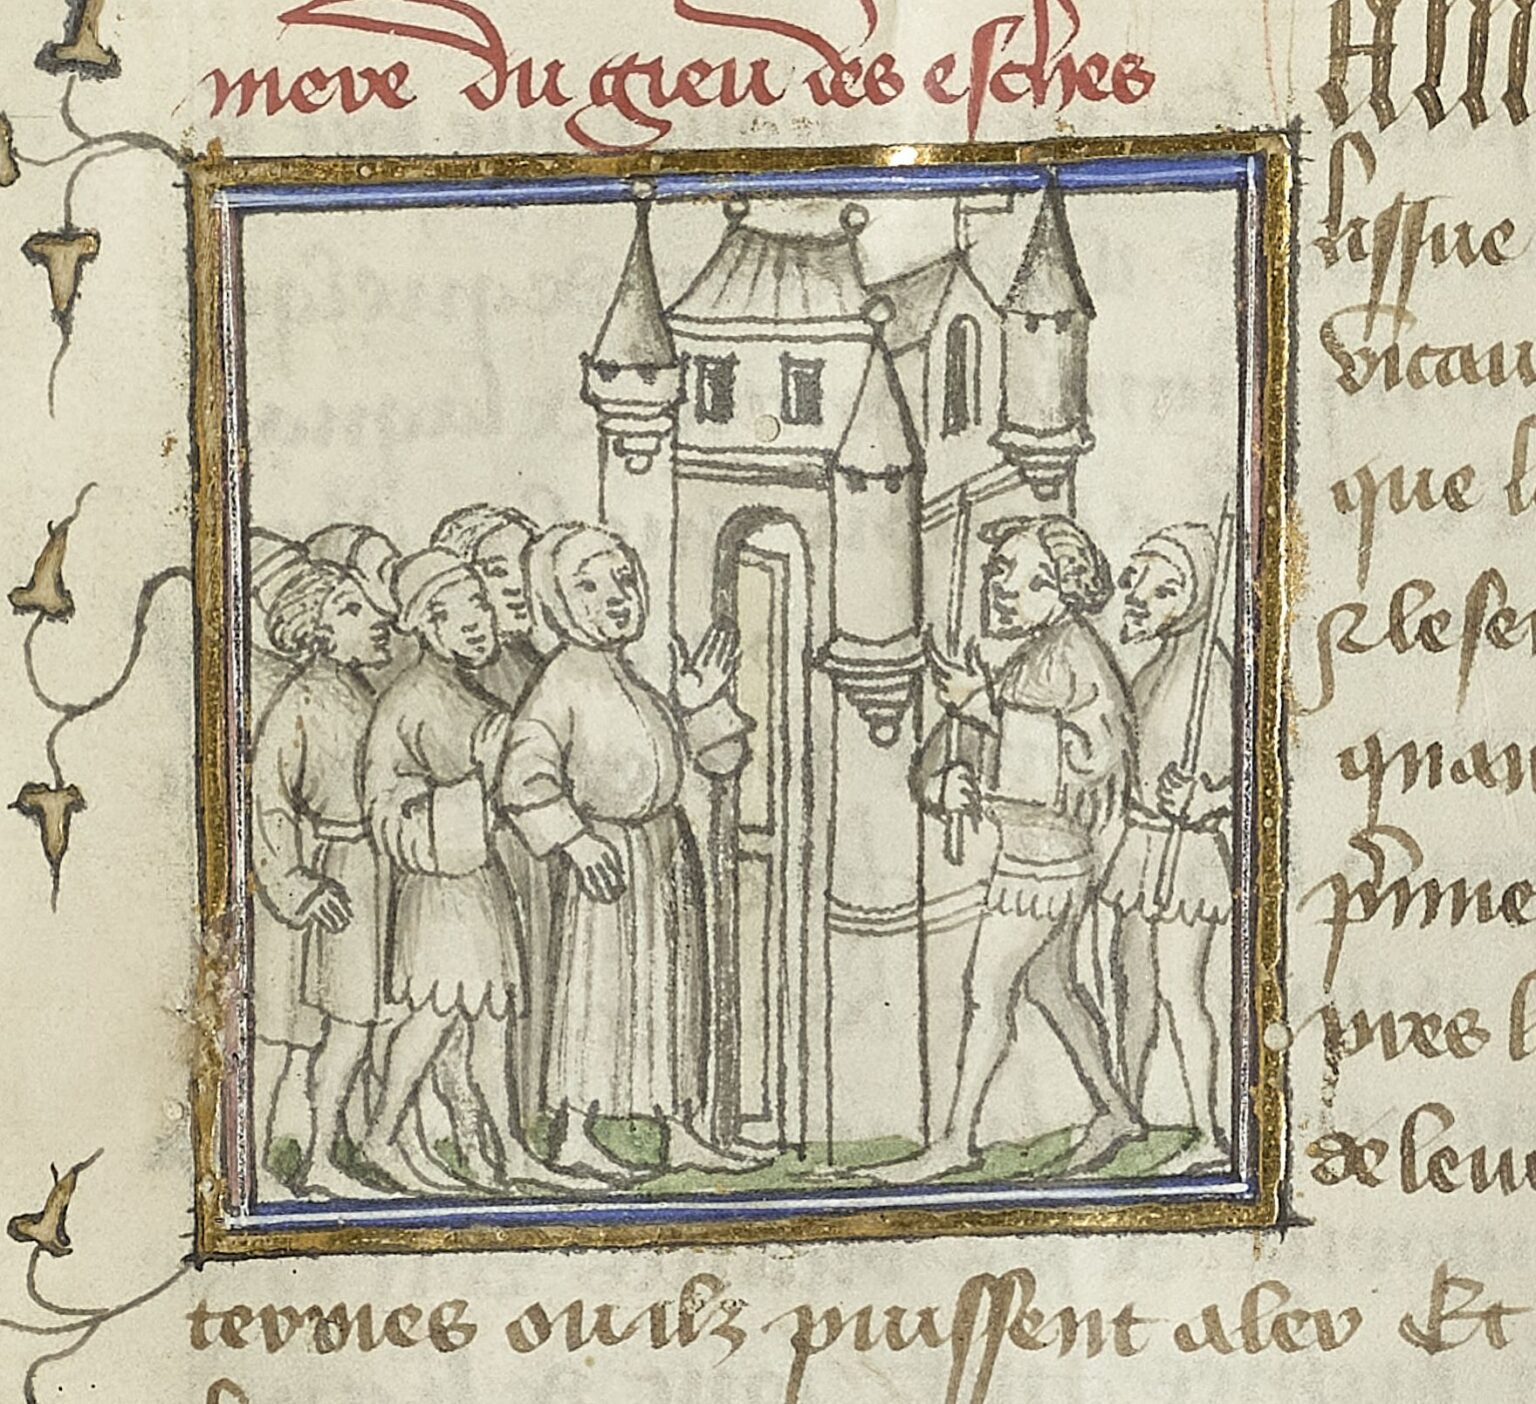 mere du gieu des esches
lissue
vitau
que l
z lese
quan
prime
pres l
de leu
termes ou ilz puissent aler Et